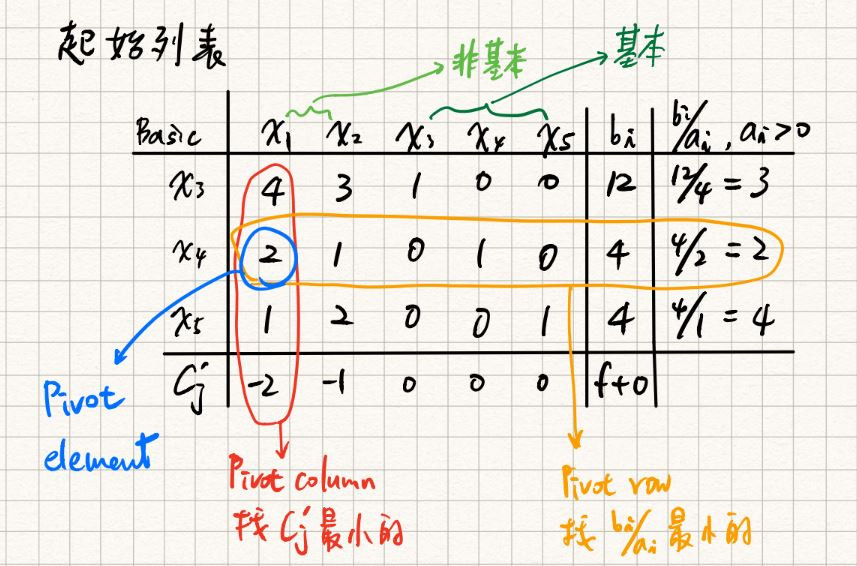 起始列表
非基本 基本
Basic x₁ x₂ x₃ x₄ x₅ bᵢ bᵢ/aᵢ , aᵢ>0
x₃ 4 3 1 0 0 12 12/4 = 3
x₄ 2 1 0 1 0 4 4/2 = 2
x₅ 1 2 0 0 1 4 4/1 = 4
Cⱼ -2 -1 0 0 0 f+0
Pivot
element
Pivot column
找 Cⱼ 最小的
Pivot row
找 bᵢ/aᵢ 最小的